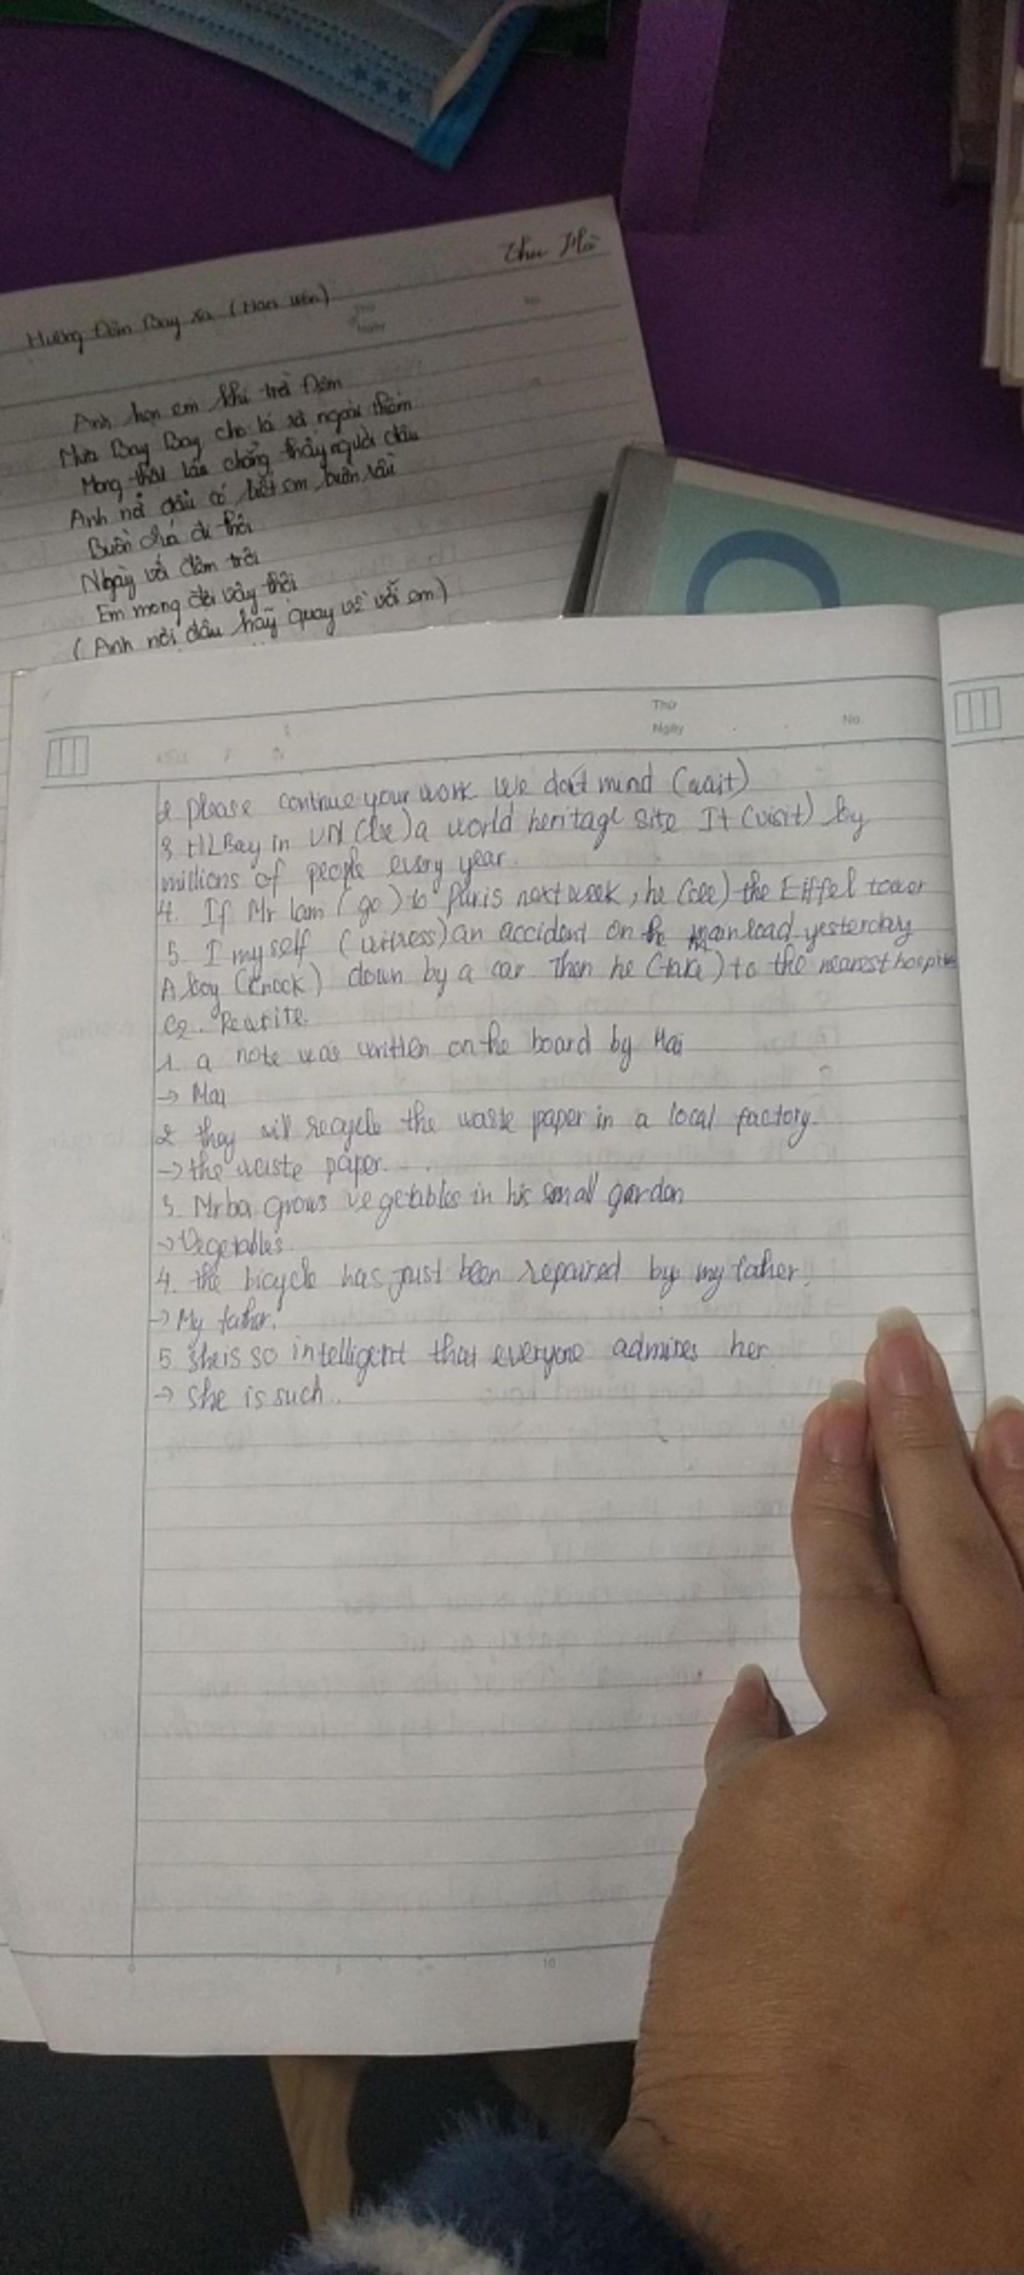 Thu
Anh hẹn em khi trời đêm
Mưa Bay Bay cho lá rơi ngoài thềm
Mong thật lâu chẳng thấy người đâu
Anh nơi đâu có biết em buồn rầu
Buồn chi thôi
Ngày với đêm trôi
Em mong đợi vậy thôi
(Anh nơi đâu hãy quay về với em)
Thứ
Ngày No.
2 please continue your work We don't mind (wait)
3. HL Bay in VN (be) a world heritage site It (visit) by
millions of people every year.
4. If Mr Lam (go) to Paris next week, he (see) the Eiffel tower
5. I my self (witness) an accident on the main load yesterday
A boy (knock) down by a car Then he (take) to the nearest hospital
C2. Rewrite.
1. a note was written on the board by Mai
→ Mai
2 they will recycle the waste paper in a local factory.
→ the waste paper....
3. Mr ba grows vegetables in his small garden
→ Vegetables.
4. the bicycle has just been repaired by my father.
→ My father.
5 She is so intelligent that everyone admires her
→ She is such.
0 5 10